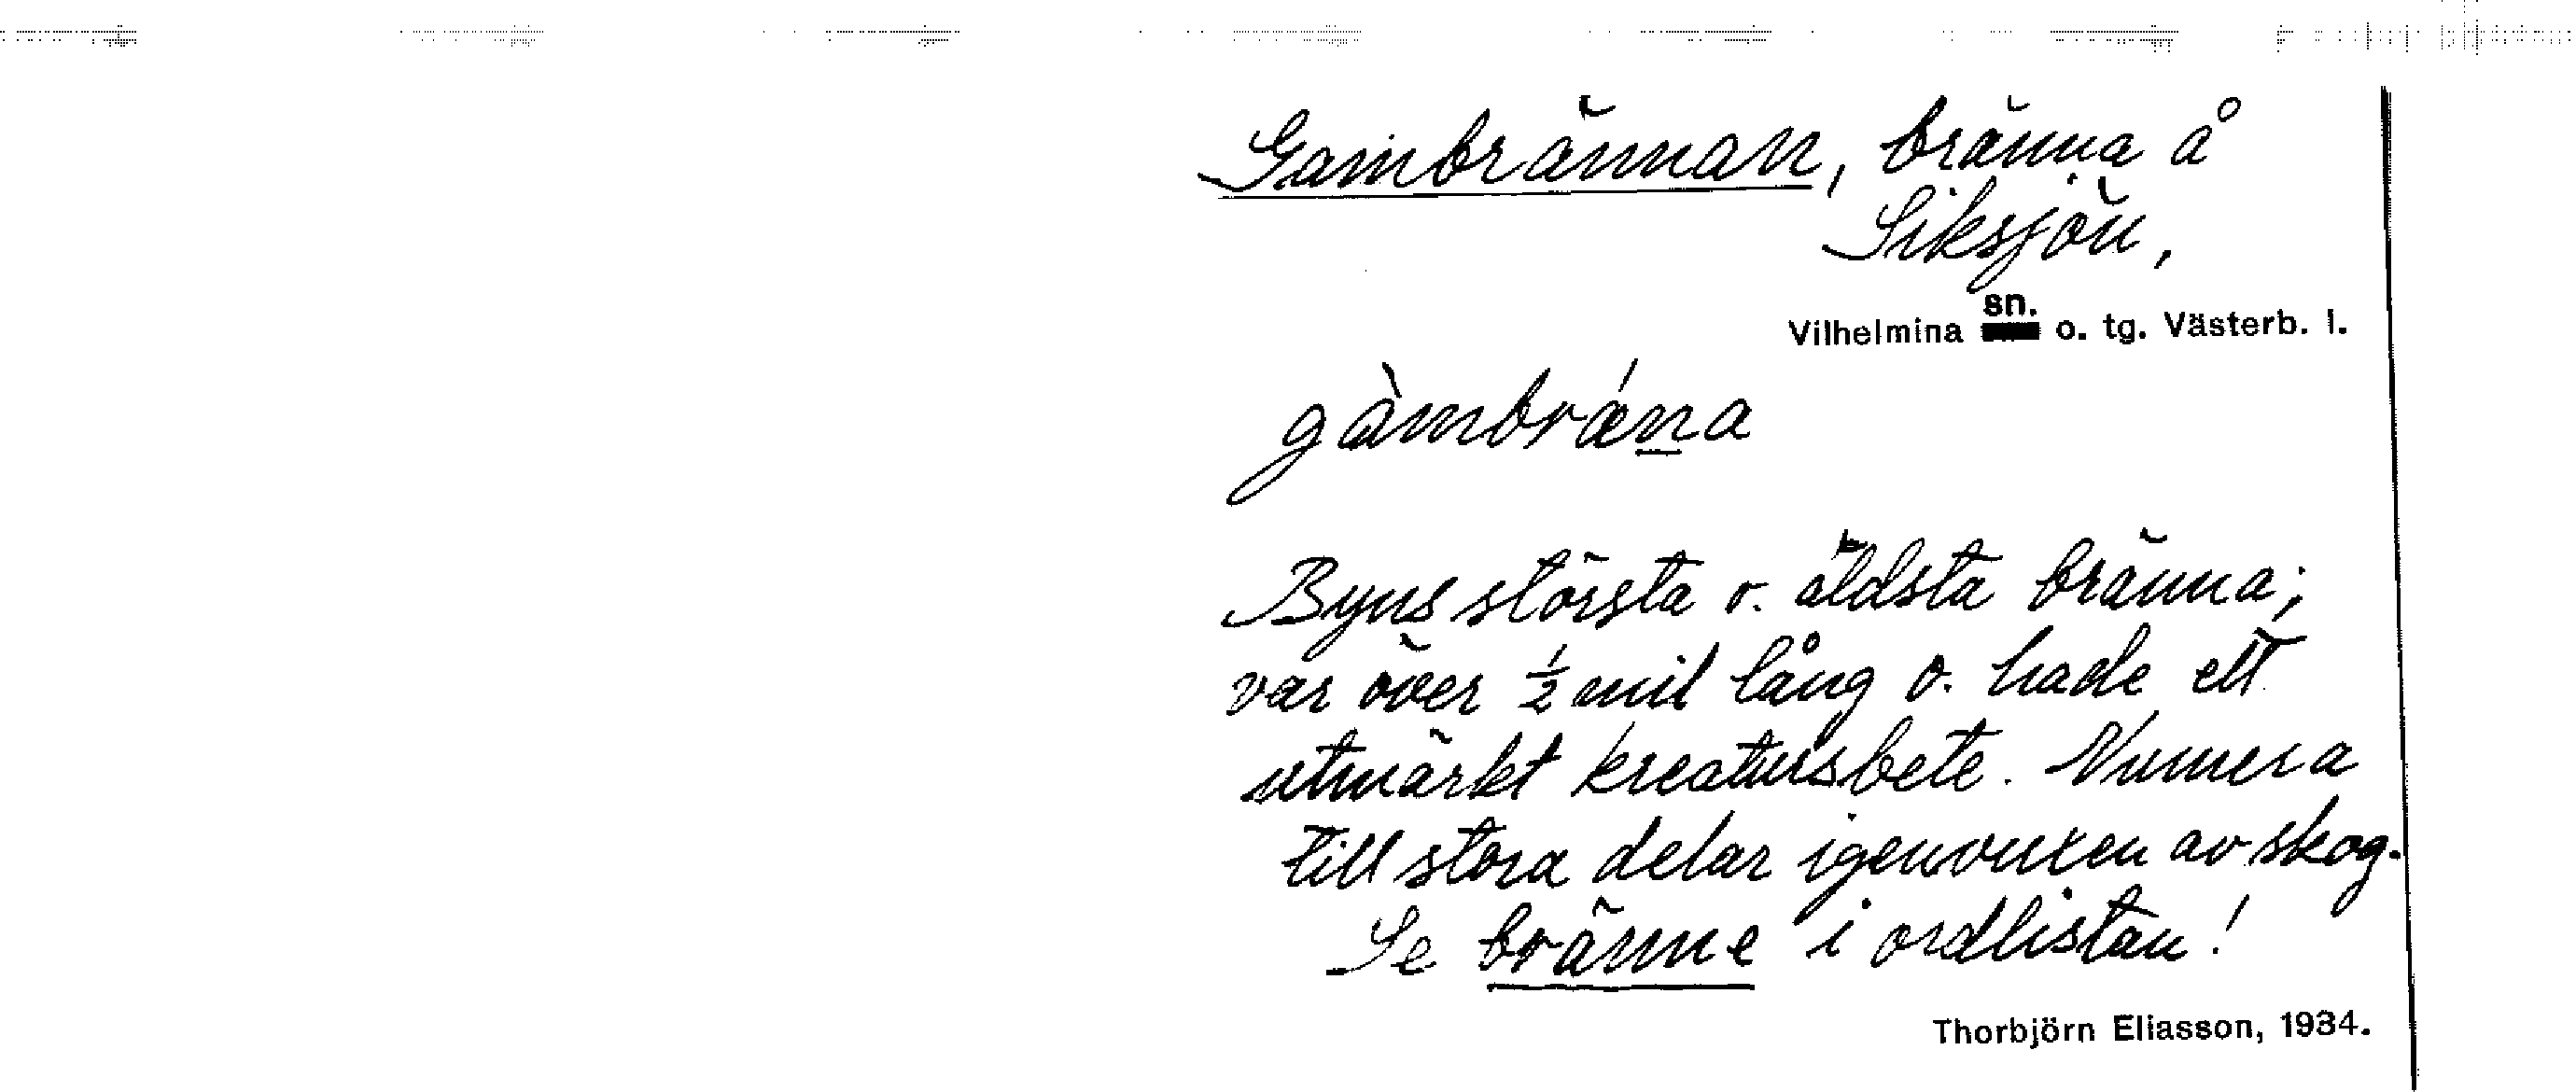 Gambrännan, bränna å
Siksjön,
sn.
Vilhelmina o. tg. Västerb. l.
gàmbrǽn̲a
Byns största o. äldsta bränna;
var över ½ mil lång o. hade ett
utmärkt kreatursbete. Numera
till stora delar igenvuxen av skog.
Se bränne i ordlistan!
Thorbjörn Eliasson, 1934.